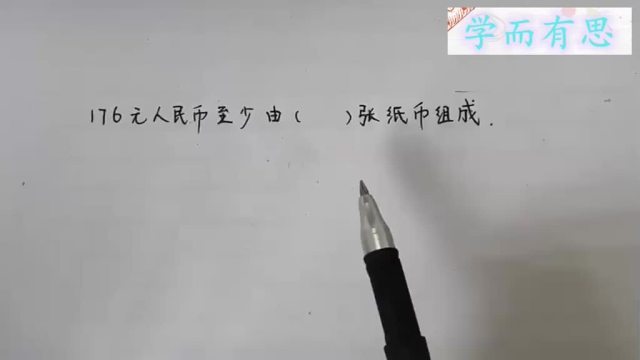 学而有思
176元人民币至少由( )张纸币组成.